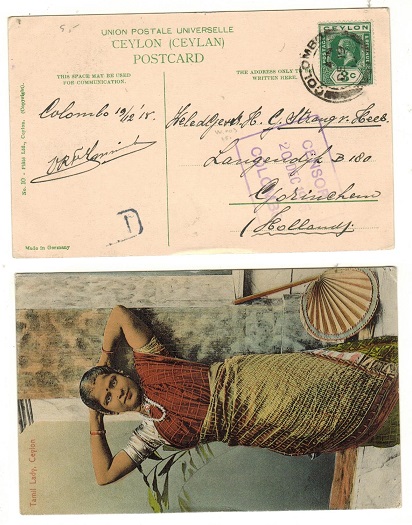 UNION POSTALE UNIVERSELLE
CEYLON (CEYLAN)
POSTCARD
THIS SPACE MAY BE USED
FOR COMMUNICATION.
THE ADDRESS ONLY TO
WRITTEN HERE.
CEYLON
COLOMBO
Colombo 19/12 '15.
H. C.
Langendijk B 180
Gorinchem
(Holland).
CENSOR
20 DEC
COLOMBO
D
No. 10 - Plâté Ltd., Ceylon. (Copyright).
Made in Germany
Tamil Lady, Ceylon